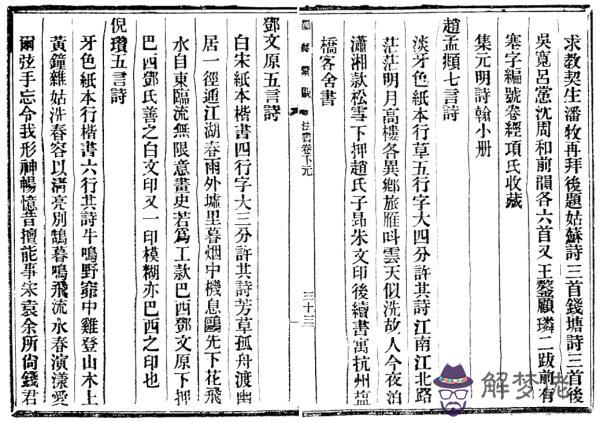 求教契生潘牧再拜後題姑蘇詩三首錢塘詩三首後
吳寬呂㦂沈周和前韻各六首又王鏊顧璘二跋前有
塞字編號卷經項氏收藏
集元明詩翰小册
趙孟頫七言詩
淡牙色紙本行草五行字大四分許其詩江南江北路
茫茫明月高樓各異鄉旅雁呌雲天似洗故人今夜泊
瀟湘款松雪下押趙氏子昂朱文印後續書寓杭州鹽
橋客舍書
卷下元
三十三
鄧文原五言詩
白宋紙本楷書四行字大三分許其詩芳草孤舟渡幽
居一徑通江湖春雨外墟里暮烟中機息鷗先下花飛
水自東臨流無限意畫史若爲工款巴西鄧文原下押
巴西鄧氏善之白文印又一印模糊亦巴西之印也
倪瓚五言詩
牙色紙本行楷書六行其詩牛鳴野窌中雞登山木上
黃鐘雜姑洗春容以淸亮别鵠暮鳴飛流水春演漾愛
爾弦手忘令我形神暢憶昔擅能事宋袁余所尙錢君
解梦佬